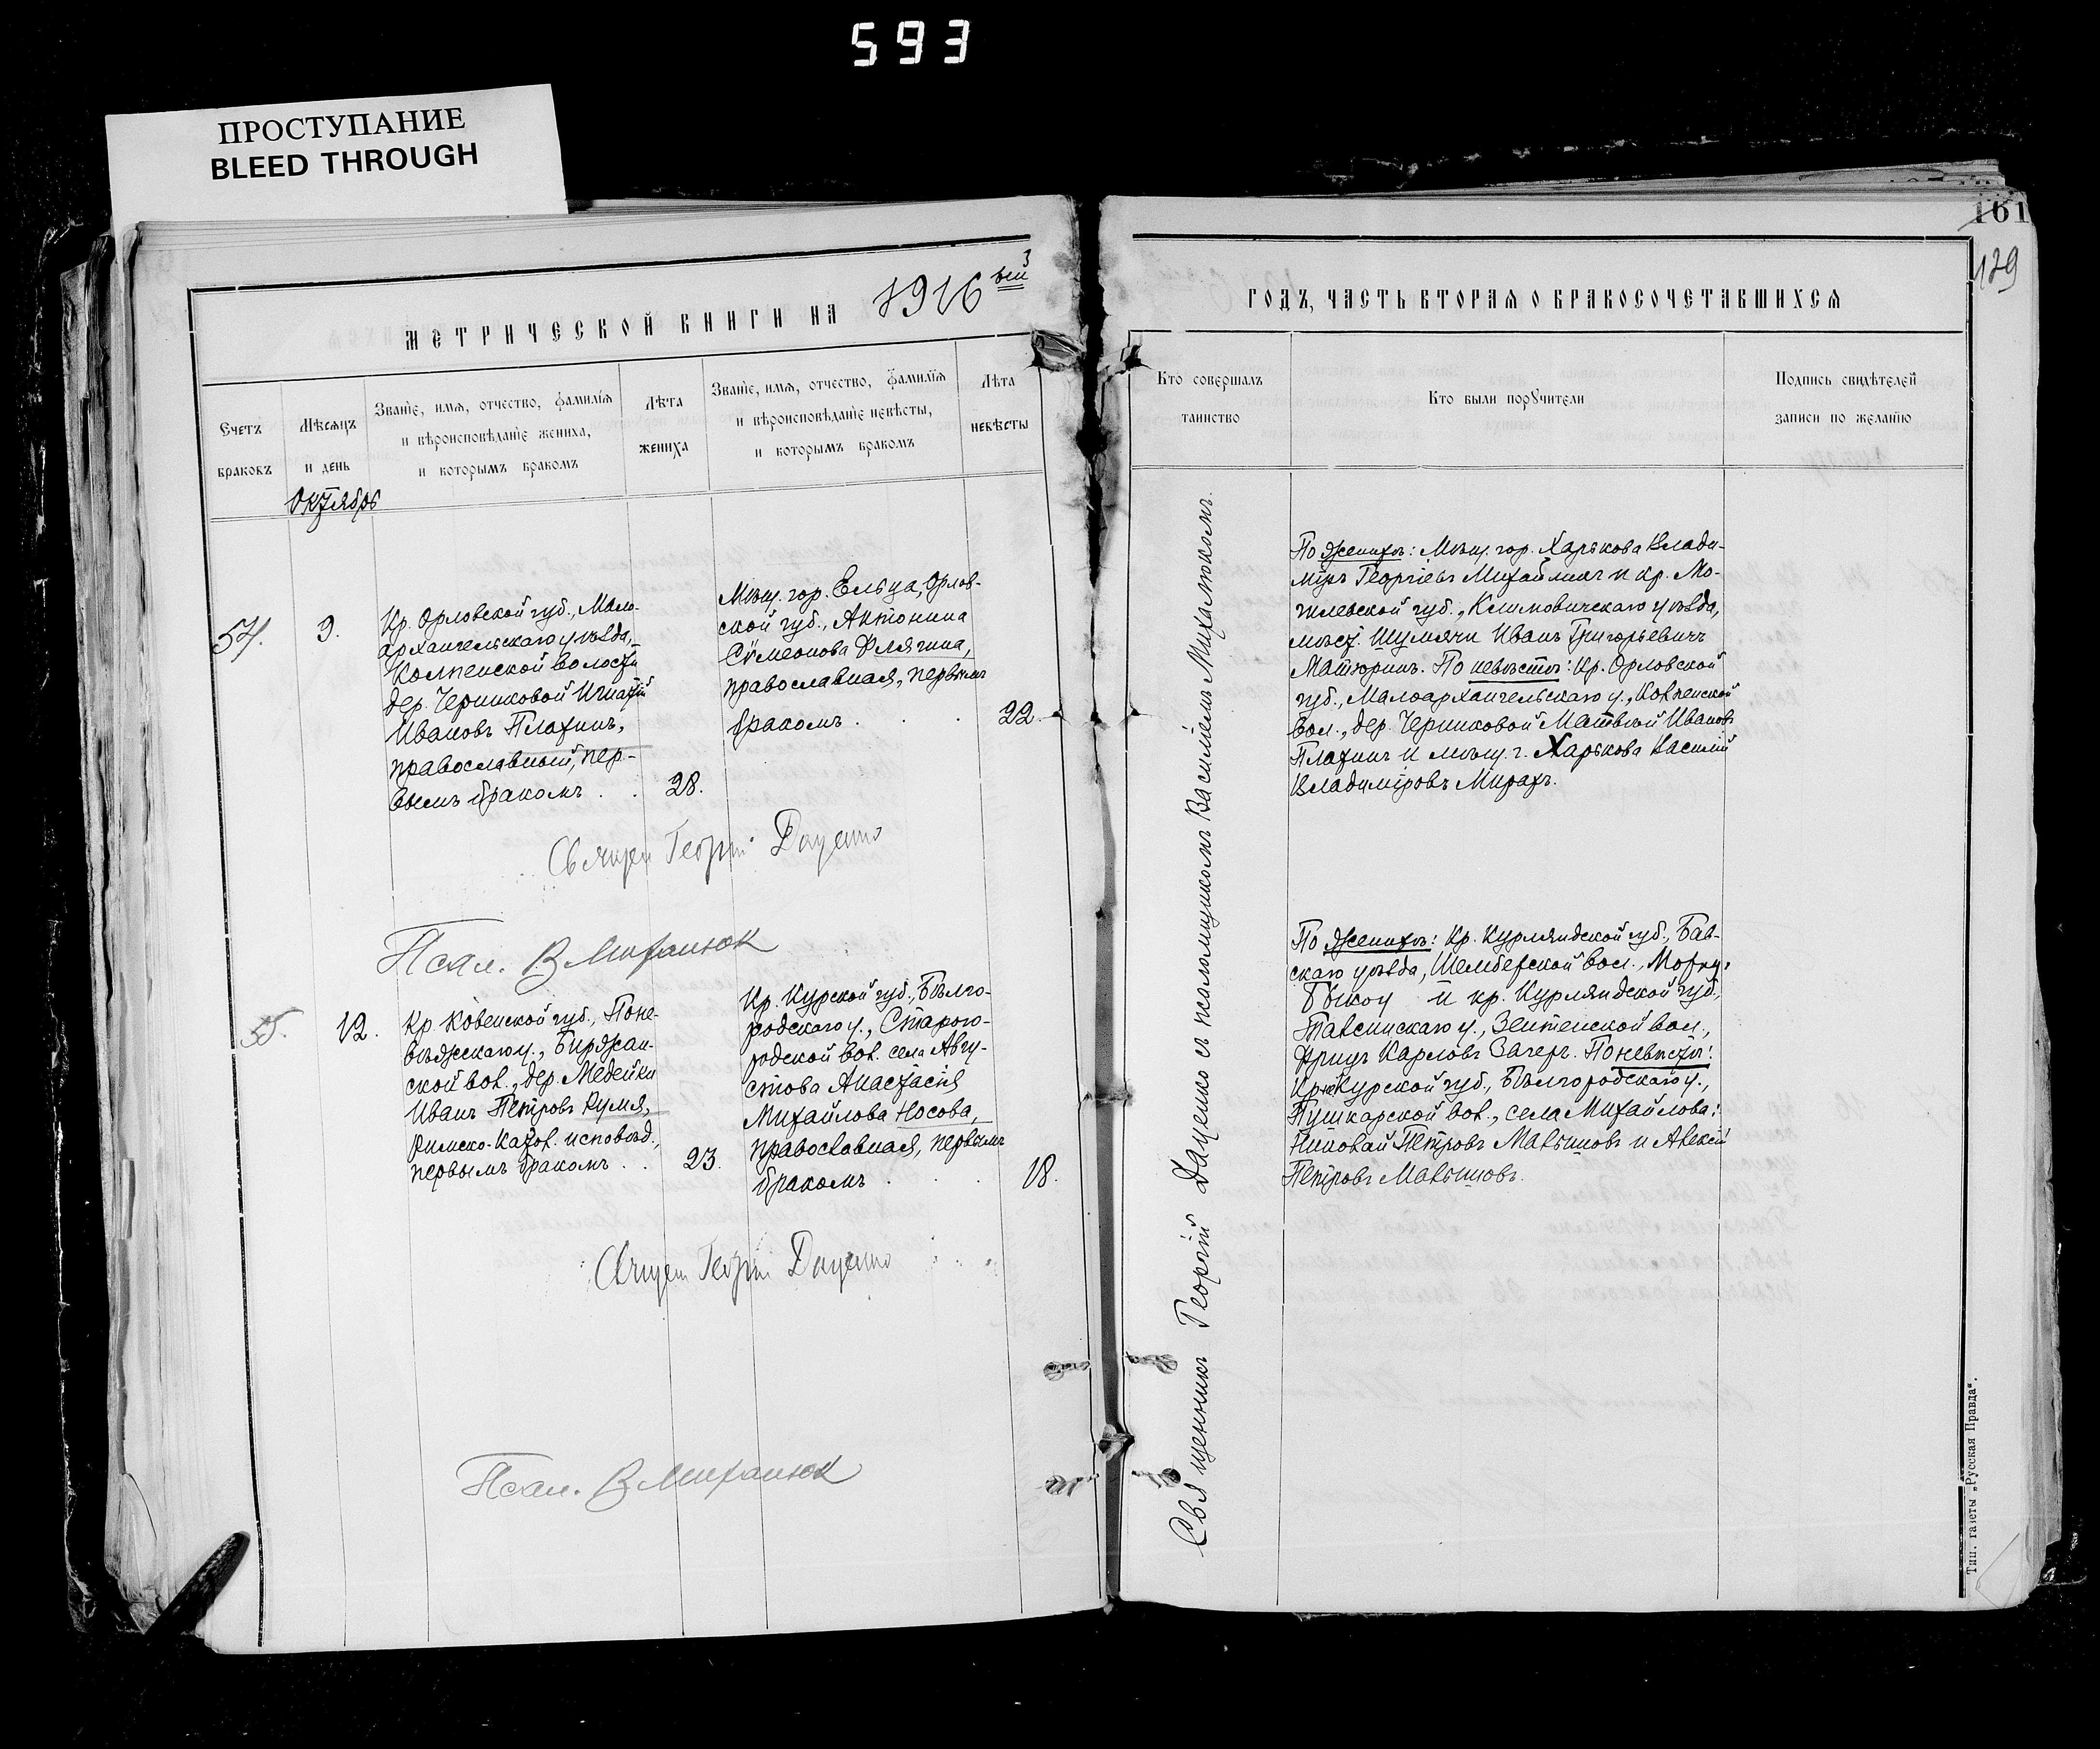 593
ПРОСТУПАНИЕ
BLEED THROUGH
161
129
МЕТРИЧЕСКОЙ КНИГИ НА 1916ый
3
ГОДЪ, ЧАСТЬ ВТОРАЯ О БРАКОСОЧЕТАВШИХСЯ
Счетъ
браковъ
Мѣсяцъ
и день
Званіе, имя, отчество, фамилія
и вѣроисповѣданіе жениха,
и которымъ бракомъ
Лѣта
жениха
Званіе, имя, отчество, фамилія
и вѣроисповѣданіе невѣсты,
и которымъ бракомъ
Лѣта
невѣсты
Кто совершалъ
таинство
Кто были поручители
Подпись свидѣтелей
записи по желанію
Октябрь
54.
9.
Кр. Орловской губ., Мало-
архангельскаго уѣзда,
Колпенской волости
дер. Черниковой Игнатій
Ивановъ Плахинъ,
православный, пер-
вымъ бракомъ . .
28.
Мѣщ. гор. Ельца, Орлов-
ской губ., Антонина
Сѵмеонова
православная, первымъ
бракомъ . . .
22.
Священ Георгій Даценко
Псал. В Михалюк
55.
12.
Кр. Ковенской губ., Поне-
вѣжскаго у., Биржан-
ской вол., дер. Медейки
Иванъ Петровъ Румя,
Римско-Катол. исповѣд.,
первымъ бракомъ . .
23.
Кр. Курской губ., Бѣлго-
родскаго у., Старого-
родской вол. села Авгу-
стова Анастасія
Михайлова Носова,
православная, первымъ
бракомъ . . .
18.
Священ Георгій Даценко
Псал. В Михалюк
Священникъ Георгій Даценко съ псаломщикомъ Василіемъ Михалюкомъ.
По женихѣ: Мѣщ. гор. Харькова Влади-
міръ Георгіевъ и кр. Мо-
гилевской губ., Климовичскаго уѣзда,
мѣст. Шумячи Иванъ Григорьевичъ
Матюринъ. По невѣстѣ: кр. Орловской
губ., Малоархангельскаго у., Колпенской
вол., дер. Черниковой Матвѣй Ивановъ
Плахинъ и мѣщ. г. Харькова Василій
Владиміровъ
По женихѣ: Кр. Курляндской губ., Бав-
скаго уѣзда, вол.,
и кр. Курляндской губ.,
Тальсинскаго у., Зентенской вол.,
Фрицъ Карловъ По невѣстѣ:
Курской губ., Бѣлгородскаго у.,
Пушкарской вол., села Михайлова:
Николай Петровъ и Алексій
Петровъ
Тип. газеты „Русская Правда“.